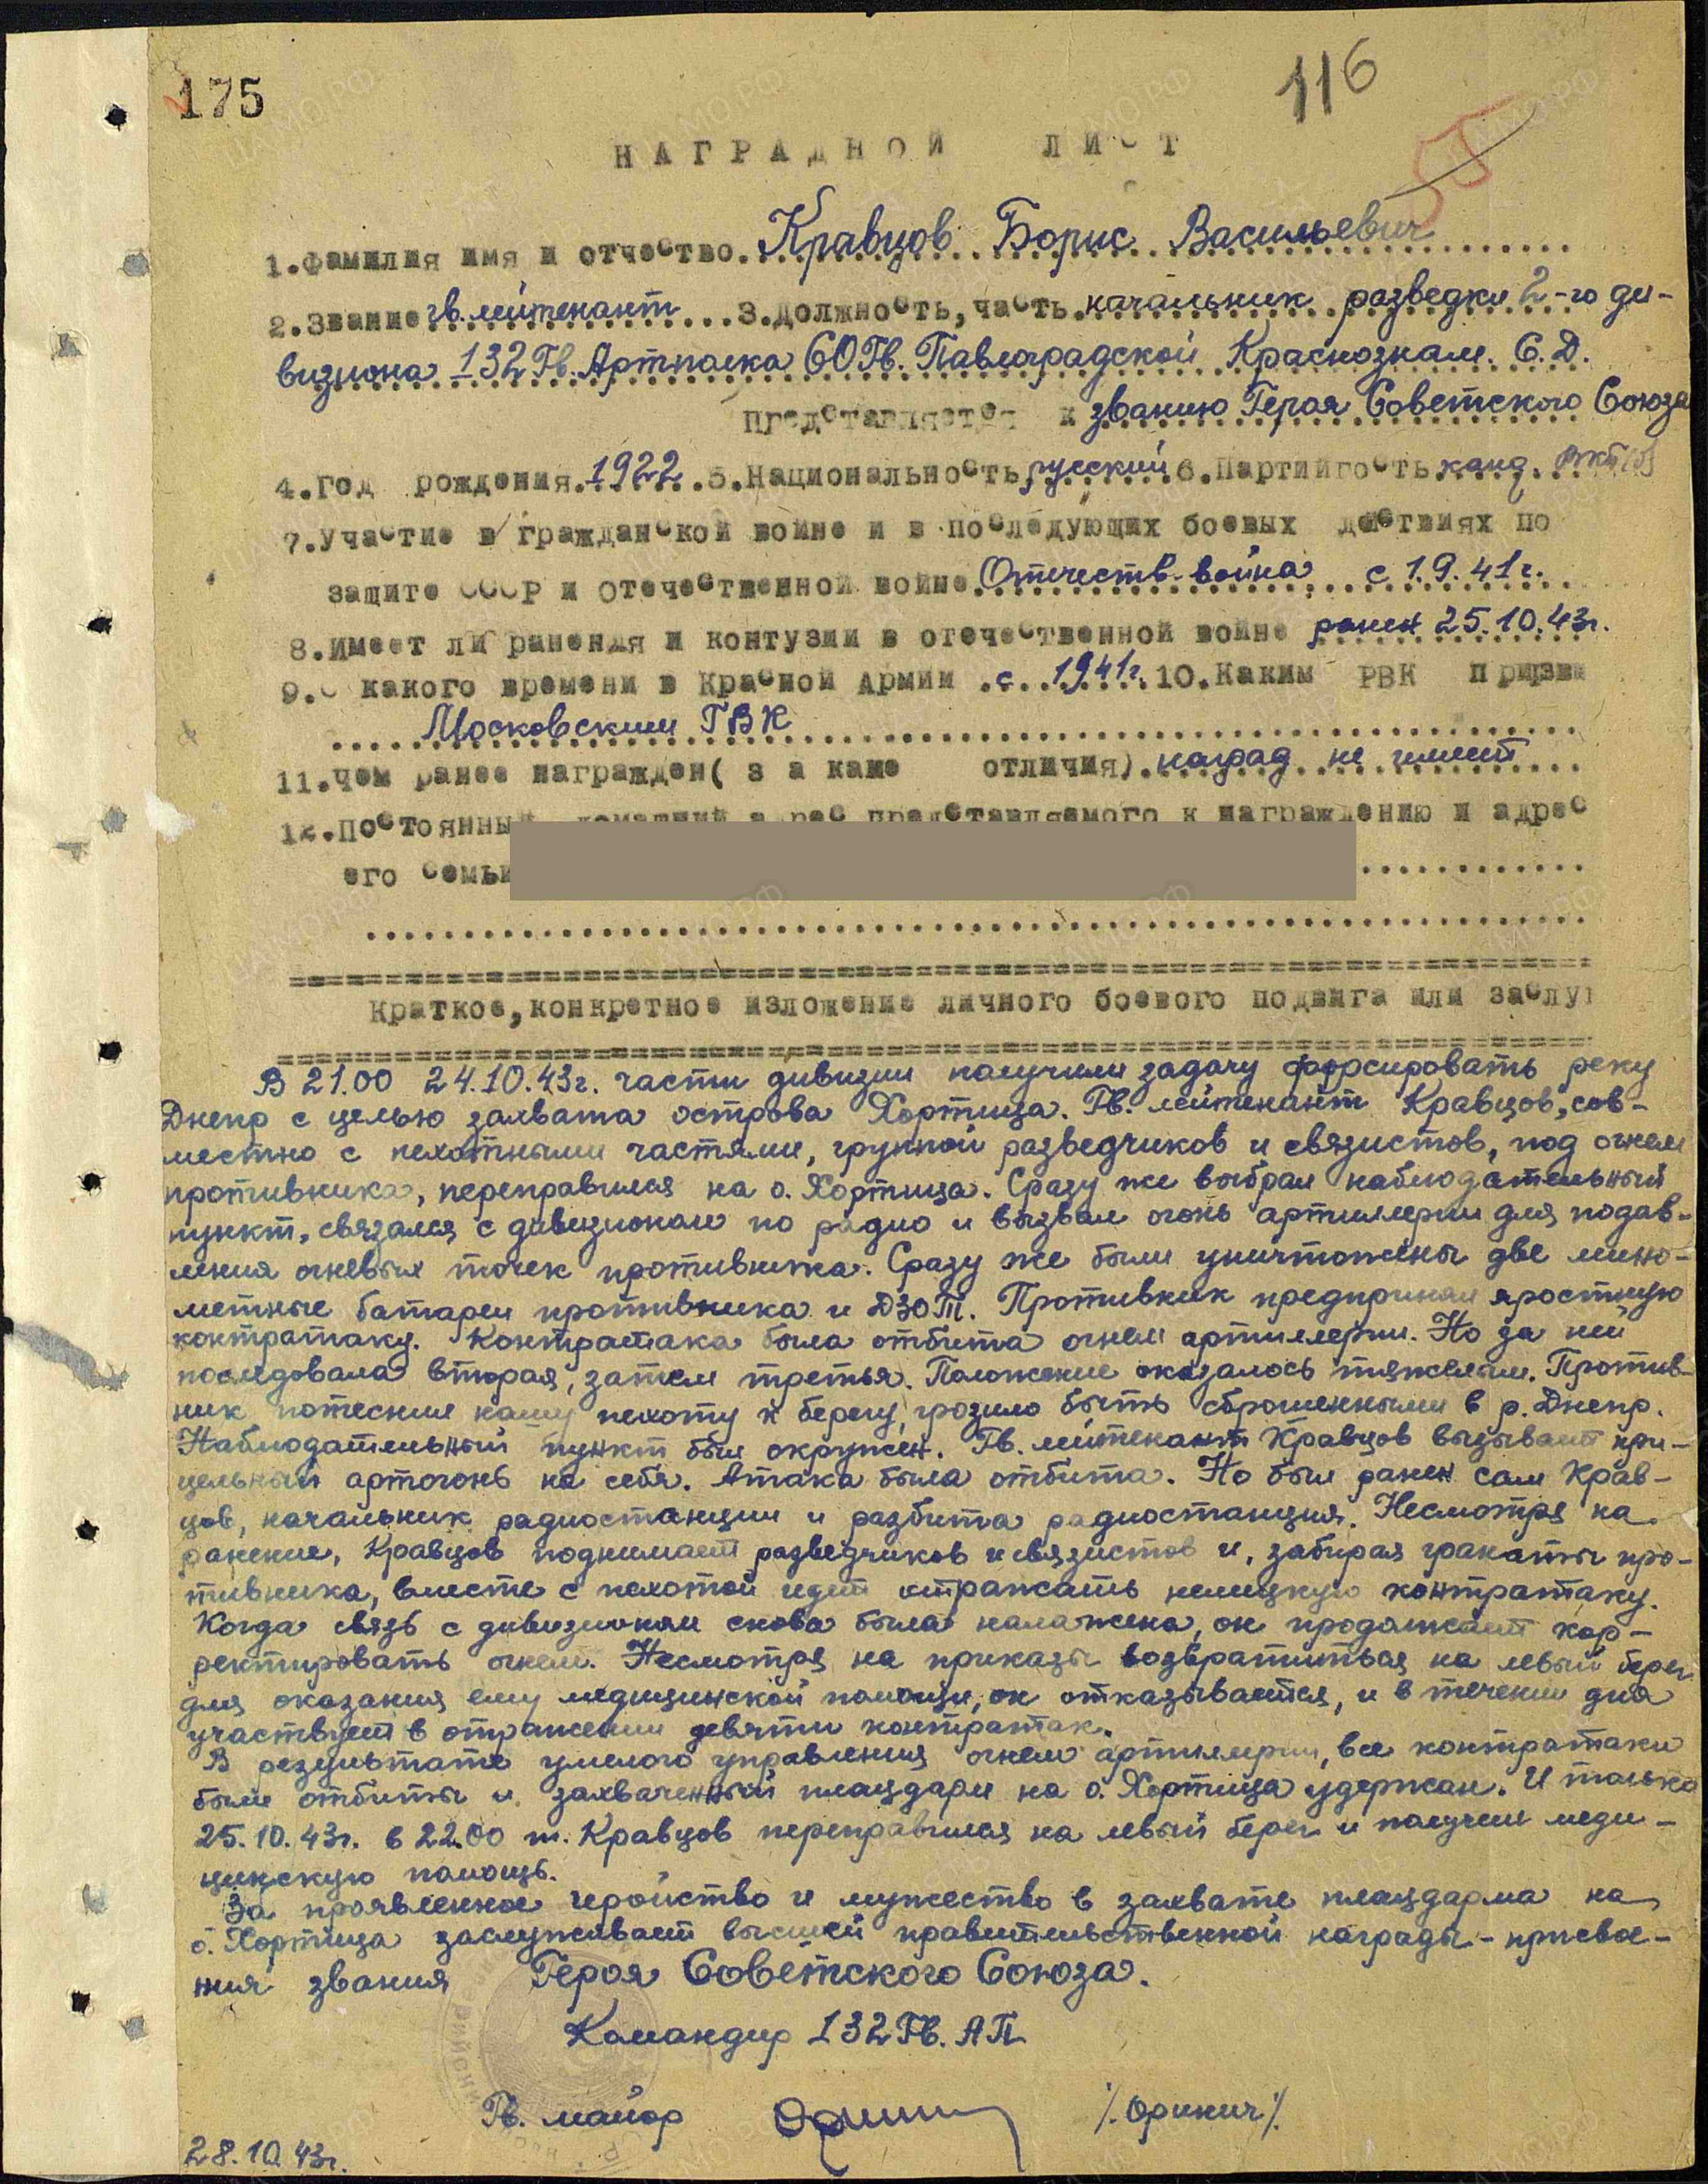 175
116
55
НАГРАДНОЙ ЛИСТ
1.Фамилия имя и отчество. Кравцов Борис Васильевич
2.Звание гв. лейтенант 3.Должность, часть. начальник разведки 2-го ди-
визиона 132 Гв. Артполка 60 Гв. Павлоградской Краснознам. С.Д.
Представляется к званию Героя Советского Союза
4.Год рождения. 1922 5.Национальность русский 6.Партийгость канд. ВКП(б)
7.Участие в гражданской войне и в последующих боевых действиях по
защите СССР и отечественной войне. Отечеств. война с 1.9.41г.
8.Имеет ли ранения и контузии в отечественной войне ранен 25.10.43г.
9.С какого времени в Красной Армии . с 1941г. 10.Каким РВК призва
Московским ГВК
11.чем ранее награжден( з а какие отличия). наград не имеет
12.Постоянный домашний адрес представляемого к награждению и адрес
его семьи
Краткое, конкретное изложение личного боевого подвига или заслуг
В 21.00 24.10.43г. части дивизии получили задачу форсировать реку
Днепр с целью захвата острова Хортица. Гв. лейтенант Кравцов, сов-
местно с пехотными частями, группой разведчиков и связистов, под огнем
противника, переправился на о. Хортица. Сразу же выбрал наблюдательный
пункт, связался с дивизионом по радио и вызвал огонь артиллерии для подав-
ления огневых точек противника. Сразу же были уничтожены две мино-
метные батареи противника и ДЗОТ. Противник предпринял яростную
контратаку. Контратака была отбита огнем артиллерии. Но за ней
последовала вторая, затем третья. Положение оказалось тяжелым. Против-
ник потеснил нашу пехоту к берегу, грозило быть сброшенными в р. Днепр.
Наблюдательный пункт был окружен. Гв. лейтенант Кравцов вызывает при-
цельный артогонь на себя. Атака была отбита. Но был ранен сам Крав-
цов, начальник радиостанции и разбита радиостанция. Несмотря на
ранение, Кравцов поднимает разведчиков и связистов и, забирая гранаты про-
тивника, вместе с пехотой идет отражать немецкую контратаку.
Когда связь с дивизионом снова была налажена, он продолжает кор-
ректировать огнем. Несмотря на приказы возвратиться на левый берег
для оказания ему медицинской помощи, он отказывается, и в течении дня
участвует в отражении девяти контратак.
В результате умелого управления огнем артиллерии, все контратаки
были отбиты и захваченный плацдарм на о. Хортица удержан. И только
25.10.43г. в 22.00 т. Кравцов переправился на левый берег и получил меди-
цинскую помощь.
За проявленное геройство и мужество в захвате плацдарма на
о. Хортица заслуживает высшей правительственной награды - присвое-
ния звания Героя Советского Союза.
Командир 132 Гв. АП
Гв. майор /Орикич/
28.10.43г.